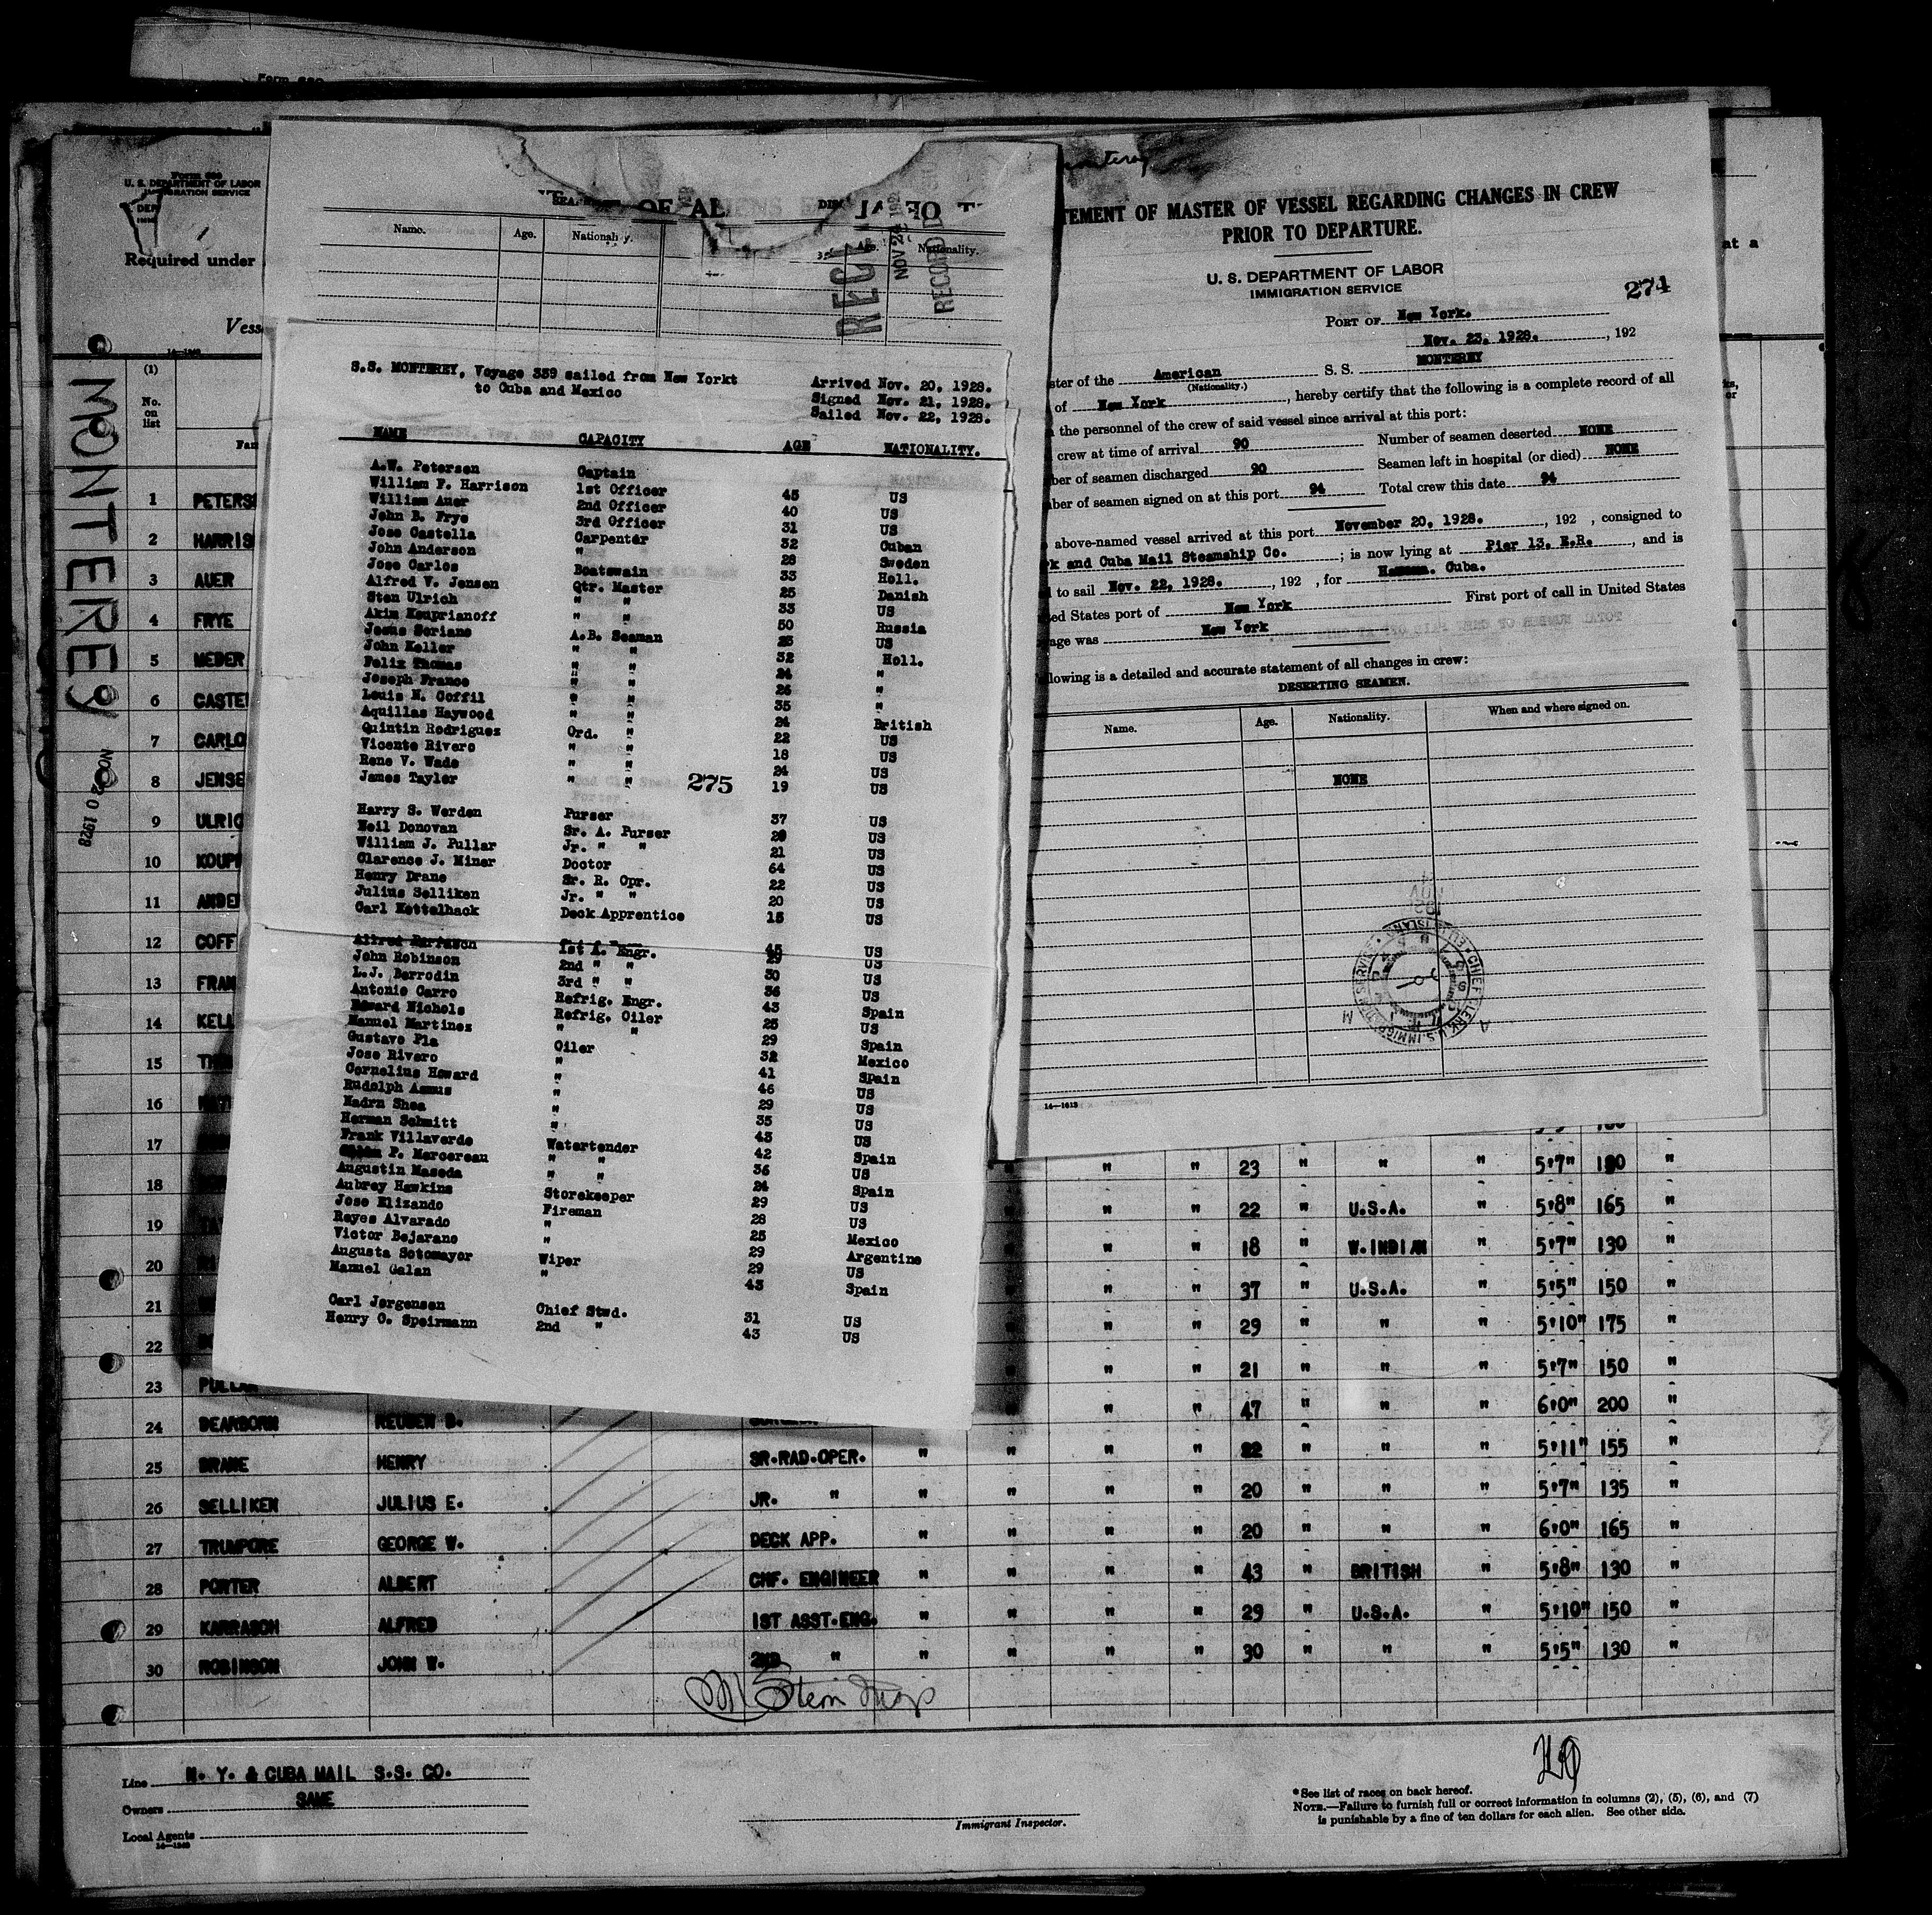 Form 680
U. S. DEPARTMENT OF LABOR
IMMIGRATION SERVICE
Required under
at a
14—1240
MONTEREY
NOV 20 1928
(1)
No.
on
list
Name. Age. Nationality. Age. Nationality.
REC
NOV 2
RECORD
S.S. MONTEREY, Voyage 339 sailed from New Yorkt
to Cuba and Mexico
Arrived Nov. 20, 1928.
Signed Nov. 21, 1928.
Sailed Nov. 22, 1928.
NAME CAPACITY AGE NATIONALITY.
A.W. Petersen Captain 45 US
William F. Harrison 1st Officer 40 US
William Auer 2nd Officer 31 US
John B. Frye 3rd Officer 32 Cuban
Jose Castella Carpenter 28 Sweden
John Anderson " 33 Holl.
Jose Carlos Boatswain 25 Danish
Alfred V. Jensen Qtr. Master 33 US
Sten Ulrich " " 50 Russia
Akim Kouprianoff " " 25 US
Jesus Soriano A.B. Seaman 32 Holl.
John Keller " " 24 "
Felix Thomas " " 26 "
Joseph Franco " " 35
Louis N. Coffil " " 24 British
Aquillas Haywood " " 22 US
Quintin Rodriguez Ord. " 18 US
Vicente Rivero " " 24 US
Rene V. Wade " " 19 US
James Taylor " "
275
Harry S. Werden Purser 37 US
Neil Donovan Sr. A. Purser 29 US
William J. Pullar Jr. " " 21 US
Clarence J. Miner Doctor 64 US
Henry Drane Sr. R. Opr. 22 US
Julius Selliken Jr. " " 20 US
Carl Kettelhack Deck Apprentice 15 US
1st A. Engr. 45 US
John Robinson 2nd " " 29 US
L.J. Berrodin 3rd " " 30 US
Antonio Carro Refrig. Engr. 36 US
Edward Nichols Refrig. Oiler 43 Spain
Manuel Martinez " " 25 US
Gustavo Pla Oiler 29 Spain
Jose Rivero " 32 Mexico
Cornelius Howard " 41 Spain
Rudolph Asmus " 46 US
Madrn Shea " 29 US
Herman Schmitt " 35 US
Frank Villaverde Watertender 43 US
P. Mercereau " " 42 Spain
Augustin Maseda " " 36 US
Aubrey Hawkins Storekeeper 24 Spain
Jose Elizando Fireman 29 US
Reyes Alvarado " 28 US
Victor Bejarano " 25 Mexico
Augusta Sotomayor Wiper 29 Argentine
Manuel Galan " 29 US
43 Spain
Carl Jorgensen Chief Stwd. 31 US
Henry C. Speirmann 2nd " 43 US
TEMENT OF MASTER OF VESSEL REGARDING CHANGES IN CREW
PRIOR TO DEPARTURE.
U. S. DEPARTMENT OF LABOR
IMMIGRATION SERVICE
274
PORT OF New York.
Nov. 23, 1928. , 192
ster of the American S. S. MONTEREY
(Nationality.)
of New York , hereby certify that the following is a complete record of all
the personnel of the crew of said vessel since arrival at this port:
crew at time of arrival 90 Number of seamen deserted NONE
ber of seamen discharged 90 Seamen left in hospital (or died) NONE
ber of seamen signed on at this port 94 Total crew this date 94
above-named vessel arrived at this port November 20, 1928. , 192 , consigned to
k and Cuba Mail Steamship Co. ; is now lying at Pier 13, E.R. , and is
to sail Nov. 22, 1928. , 192 , for Havana. Cuba.
ed States port of New York First port of call in United States
age was New York
llowing is a detailed and accurate statement of all changes in crew:
DESERTING SEAMEN.
Name. Age. Nationality. When and where signed on.
NONE
14—1613
1 PETERS
2 HARRIS
3 AUER
4 FRYE
5 MEDER
6 CASTE
7 CARLO
8 JENSE
9 ULRIC
10 KOUP
11 ANDE
12 COFF
13 FRAN
14 KELL
15
16
17
" " 23 " " " 5'7" 180
18 " " 22 " U.S.A. " 5'8" 165 "
19 " " 18 " W.INDIAN " 5'7" 130 "
20 " " 37 " U.S.A. " 5'5" 150 "
21 " " 29 " " " 5'10" 175 "
22 " " 21 " " " 5'7" 150 "
23 PULLAR " " 47 " " " 6'0" 200 "
24 DEARBORN REUBEN B.
25 DRANE HENRY SR.RAD.OPER. " " " " 22 " " " 5'11" 155 "
26 SELLIKEN JULIUS E. JR. " " " " " 20 " " " 5'7" 135 "
27 TRUMPORE GEORGE W. DECK APP. " " " " 20 " " " 6'0" 165 "
28 PORTER ALBERT CHF. ENGINEER " " " " 43 " BRITISH " 5'8" 130 "
29 KARRASCH ALFRED 1ST ASST.ENG. " " " " 29 " U.S.A. " 5'10" 150 "
30 ROBINSON JOHN W. 2ND " " " " " 30 " " " 5'5" 130 "
Line N. Y. & CUBA MAIL S.S. CO.
Owners SAME
Local Agents
14—1240
Immigrant Inspector.
* See list of races on back hereof.
NOTE.—Failure to furnish full or correct information in columns (2), (5), (6), and (7)
is punishable by a fine of ten dollars for each alien. See other side.